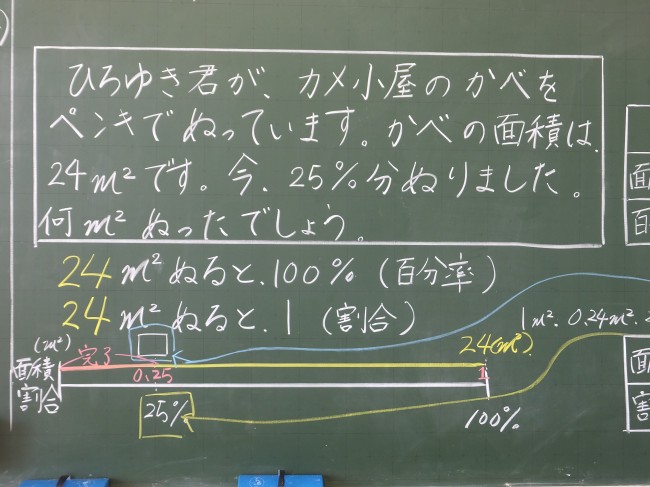 ひろゆき君が、カメ小屋のかべを
ペンキでぬっています。かべの面積は、
24m²です。今、25%分ぬりました。
何m²ぬったでしょう。
24m²ぬると、100%(百分率)
24m²ぬると、1(割合)
1m². 0.24m².
(m²) 完了 24(m²)
面積
0.25 1
割合
25% 100%
面
百
面
割